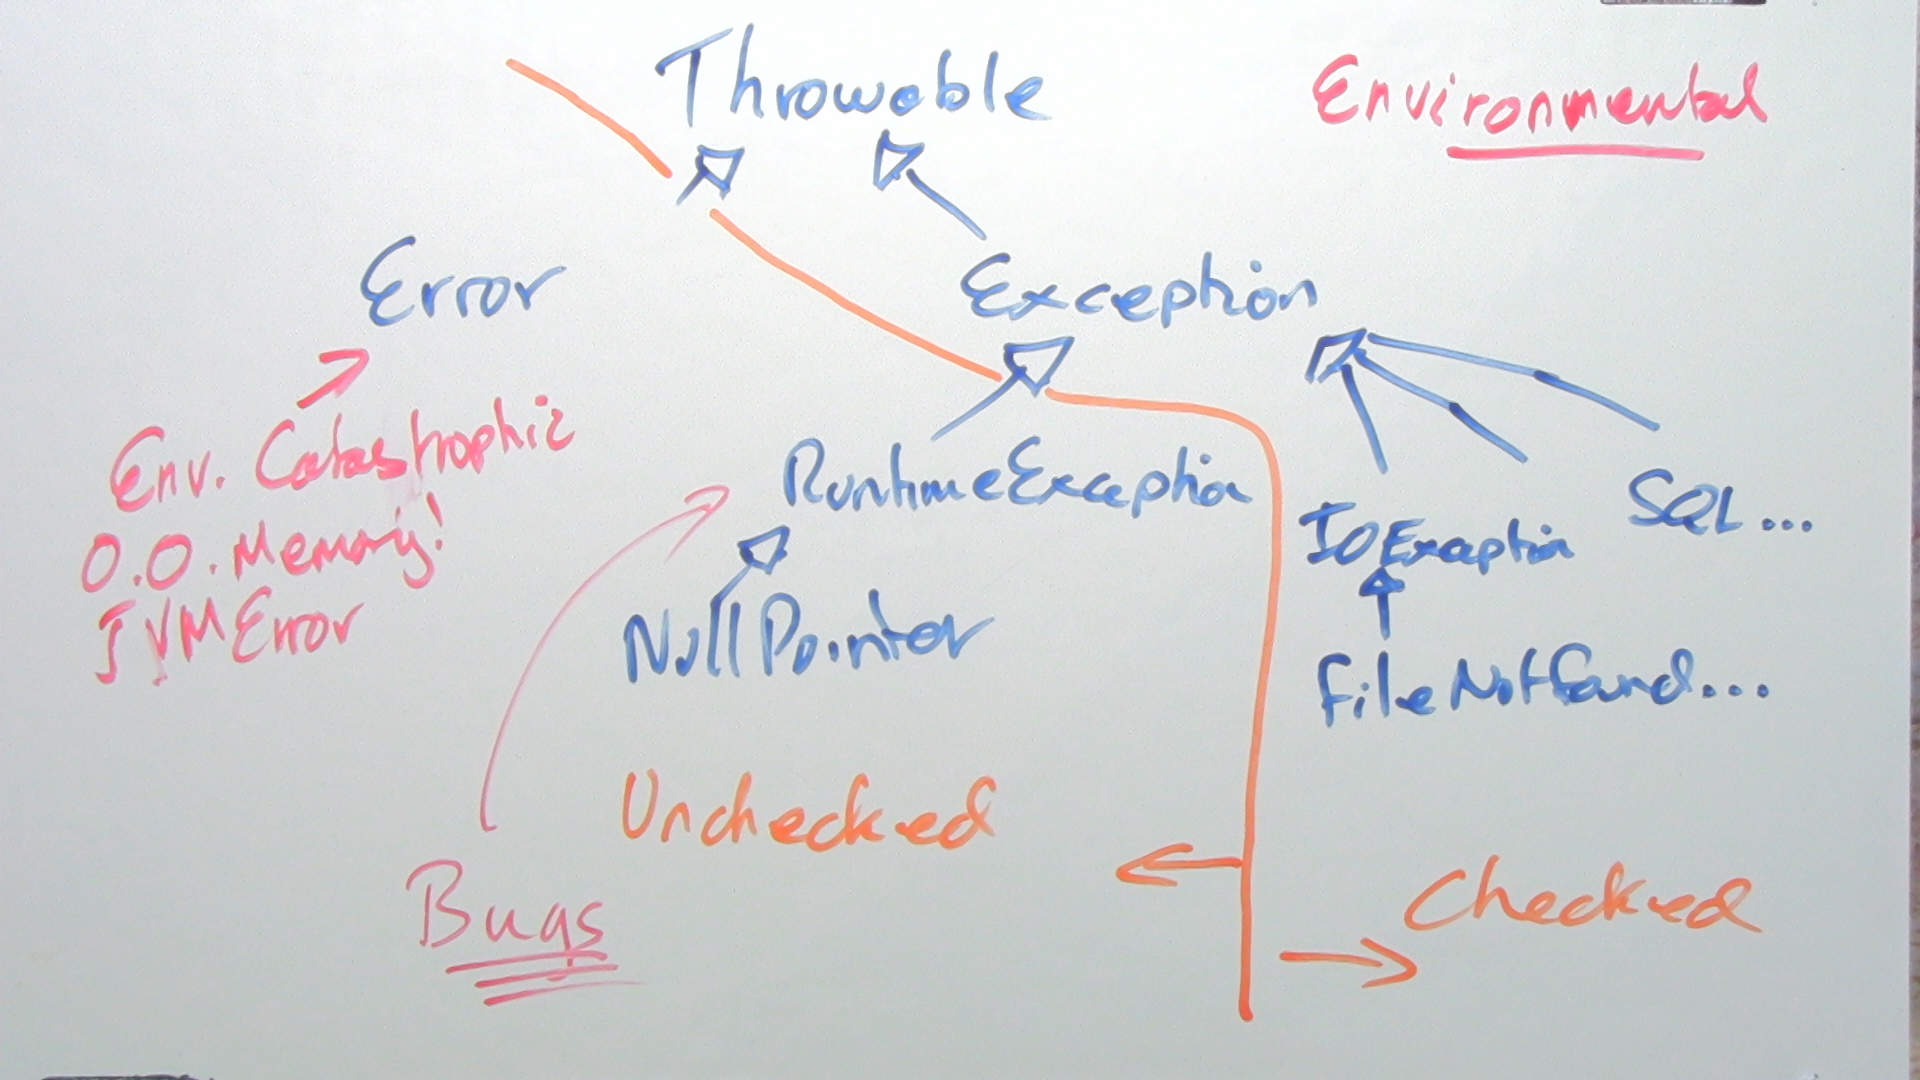 Throwable
Environmental
Error
Exception
Env. Catastrophic
O.O.Memory!
JVMError
RuntimeException
IOException
SQL...
NullPointer
FileNotFound...
Unchecked
Bugs
Checked